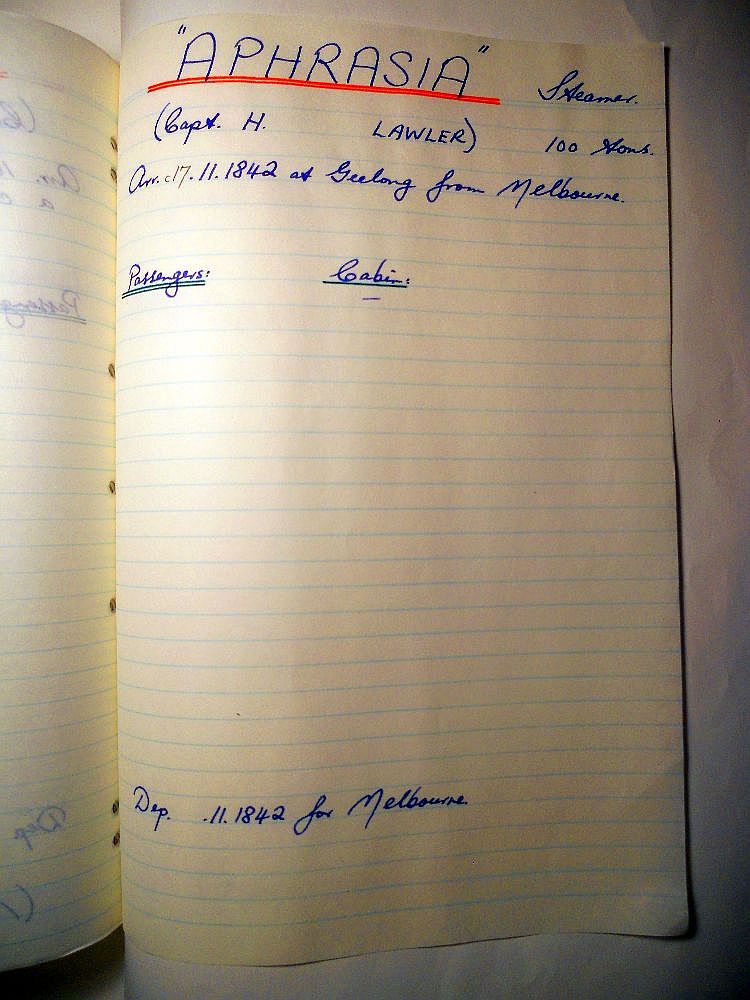 "APHRASIA" Steamer.
(Capt. H. LAWLER) 100 tons.
Arr. c17.11.1842 at Geelong from Melbourne.
Passengers: Cabin:
–
Dep. .11.1842 for Melbourne